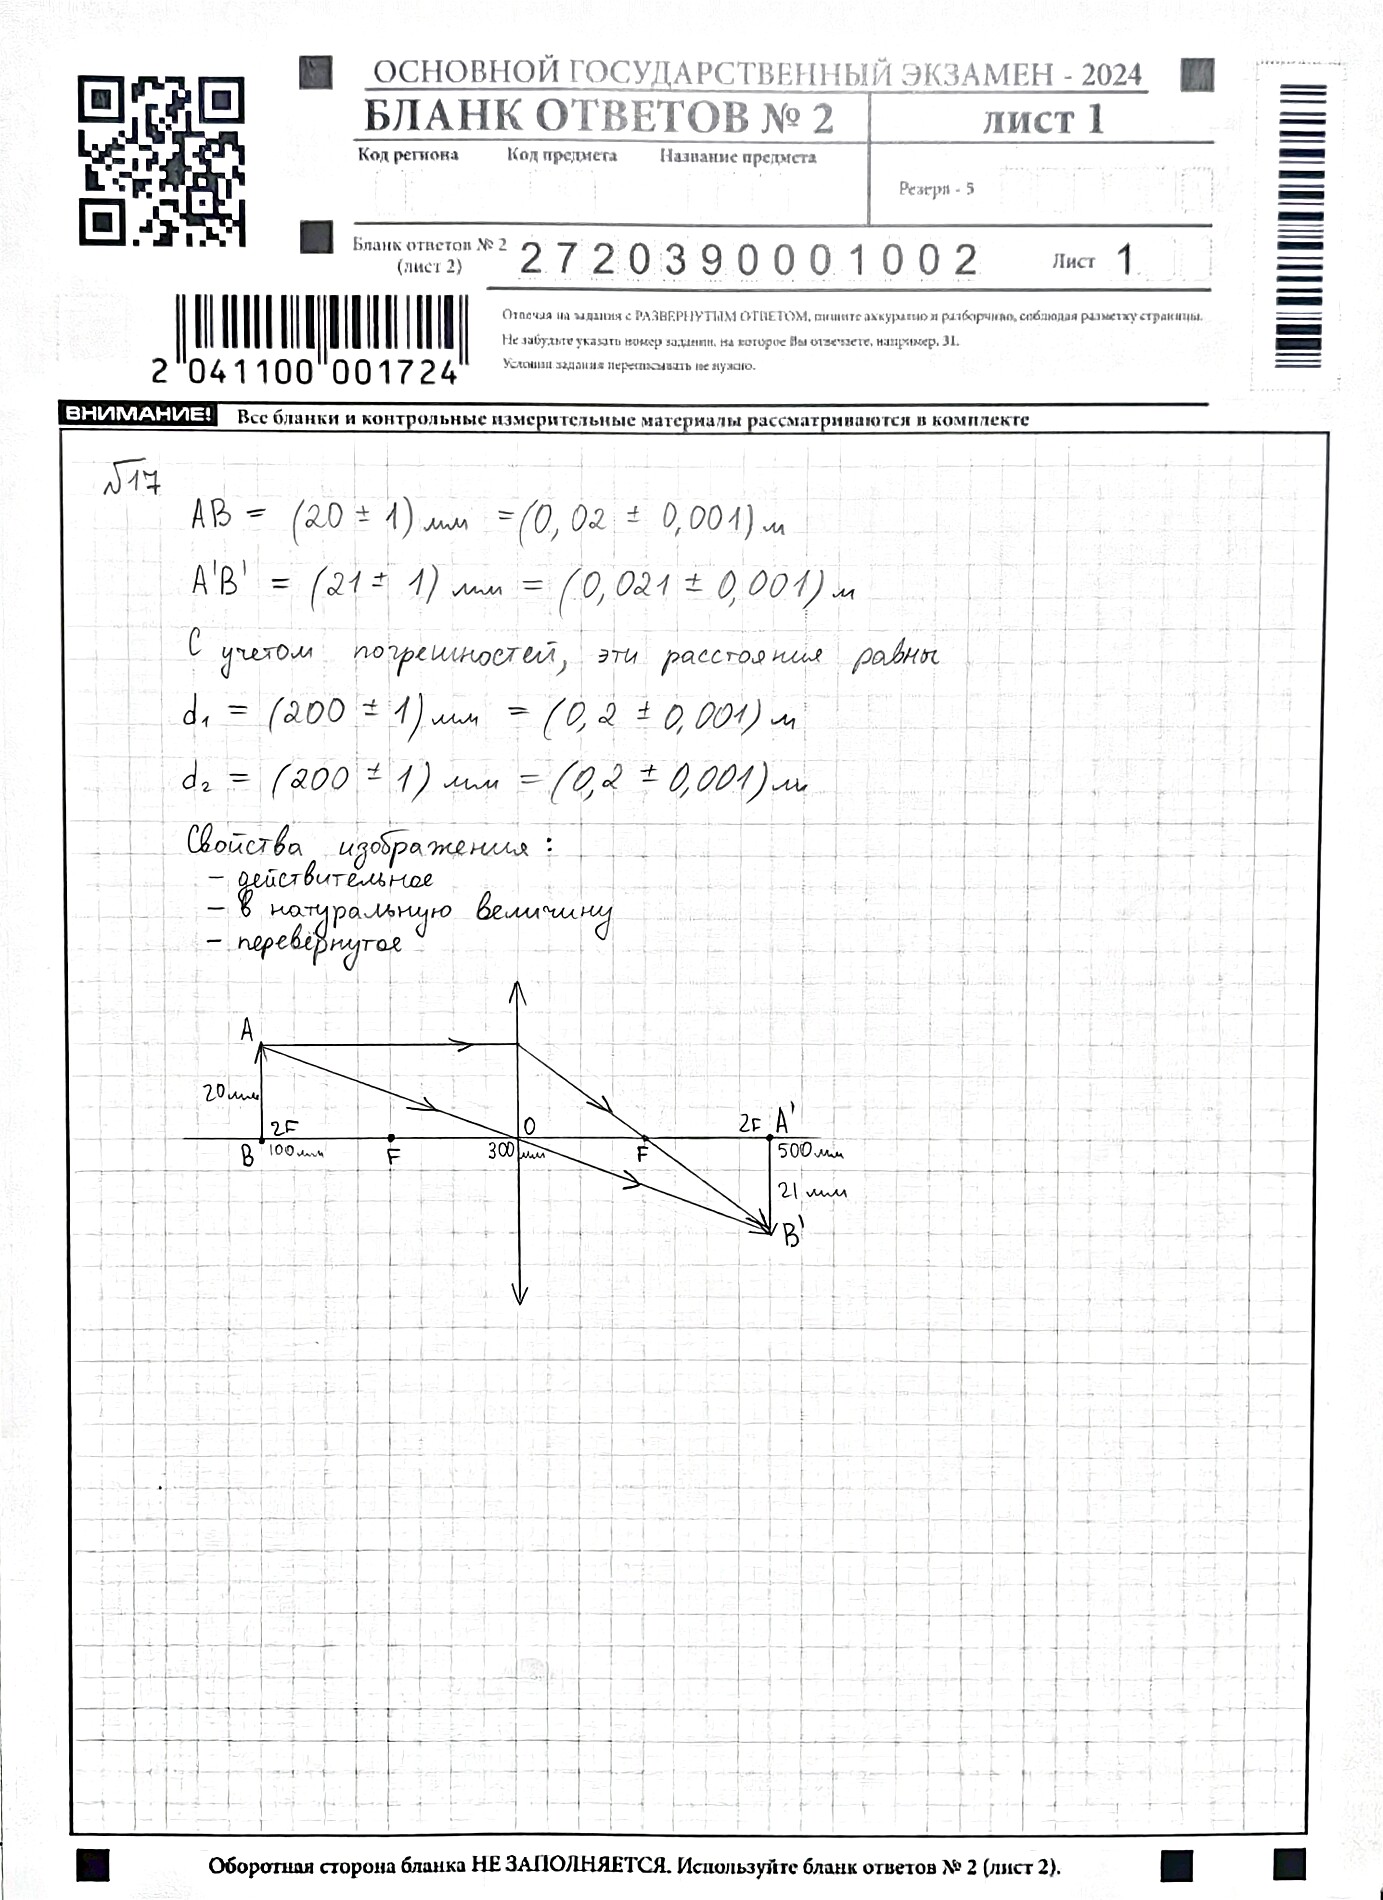 ОСНОВНОЙ ГОСУДАРСТВЕННЫЙ ЭКЗАМЕН - 2024
БЛАНК ОТВЕТОВ № 2
ЛИСТ 1
Код региона Код предмета Название предмета
Резерв - 5
Бланк ответов № 2
(лист 2)
2720390001002
Лист 1
2 041100 001724
Отвечая на задания с РАЗВЕРНУТЫМ ОТВЕТОМ, пишите аккуратно и разборчиво, соблюдая разметку страницы.
Не забудьте указать номер задания, на которое Вы отвечаете, например, 31.
Условия задания переписывать не нужно.
ВНИМАНИЕ! Все бланки и контрольные измерительные материалы рассматриваются в комплекте
№17
AB = (20 ± 1) мм = (0,02 ± 0,001) м
A'B' = (21 ± 1) мм = (0,021 ± 0,001) м
С учетом погрешностей, эти расстояния равны
d₁ = (200 ± 1) мм = (0,2 ± 0,001) м
d₂ = (200 ± 1) мм = (0,2 ± 0,001) м
Свойства изображения:
- действительное
- в натуральную величину
- перевёрнутое
A
20мм
2F
B 100мм
F
O
300мм
F
2F A'
500мм
21 мм
B'
Оборотная сторона бланка НЕ ЗАПОЛНЯЕТСЯ. Используйте бланк ответов № 2 (лист 2).